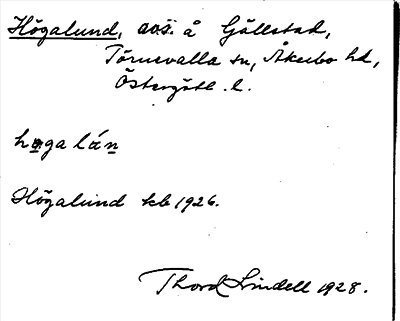 Högalund, avs. å Gällstad,
Törnevalla sn, Åkerbo hd,
Östergötl. l.
høga lán
Högalund kb 1926.
Thord Lindell 1928.